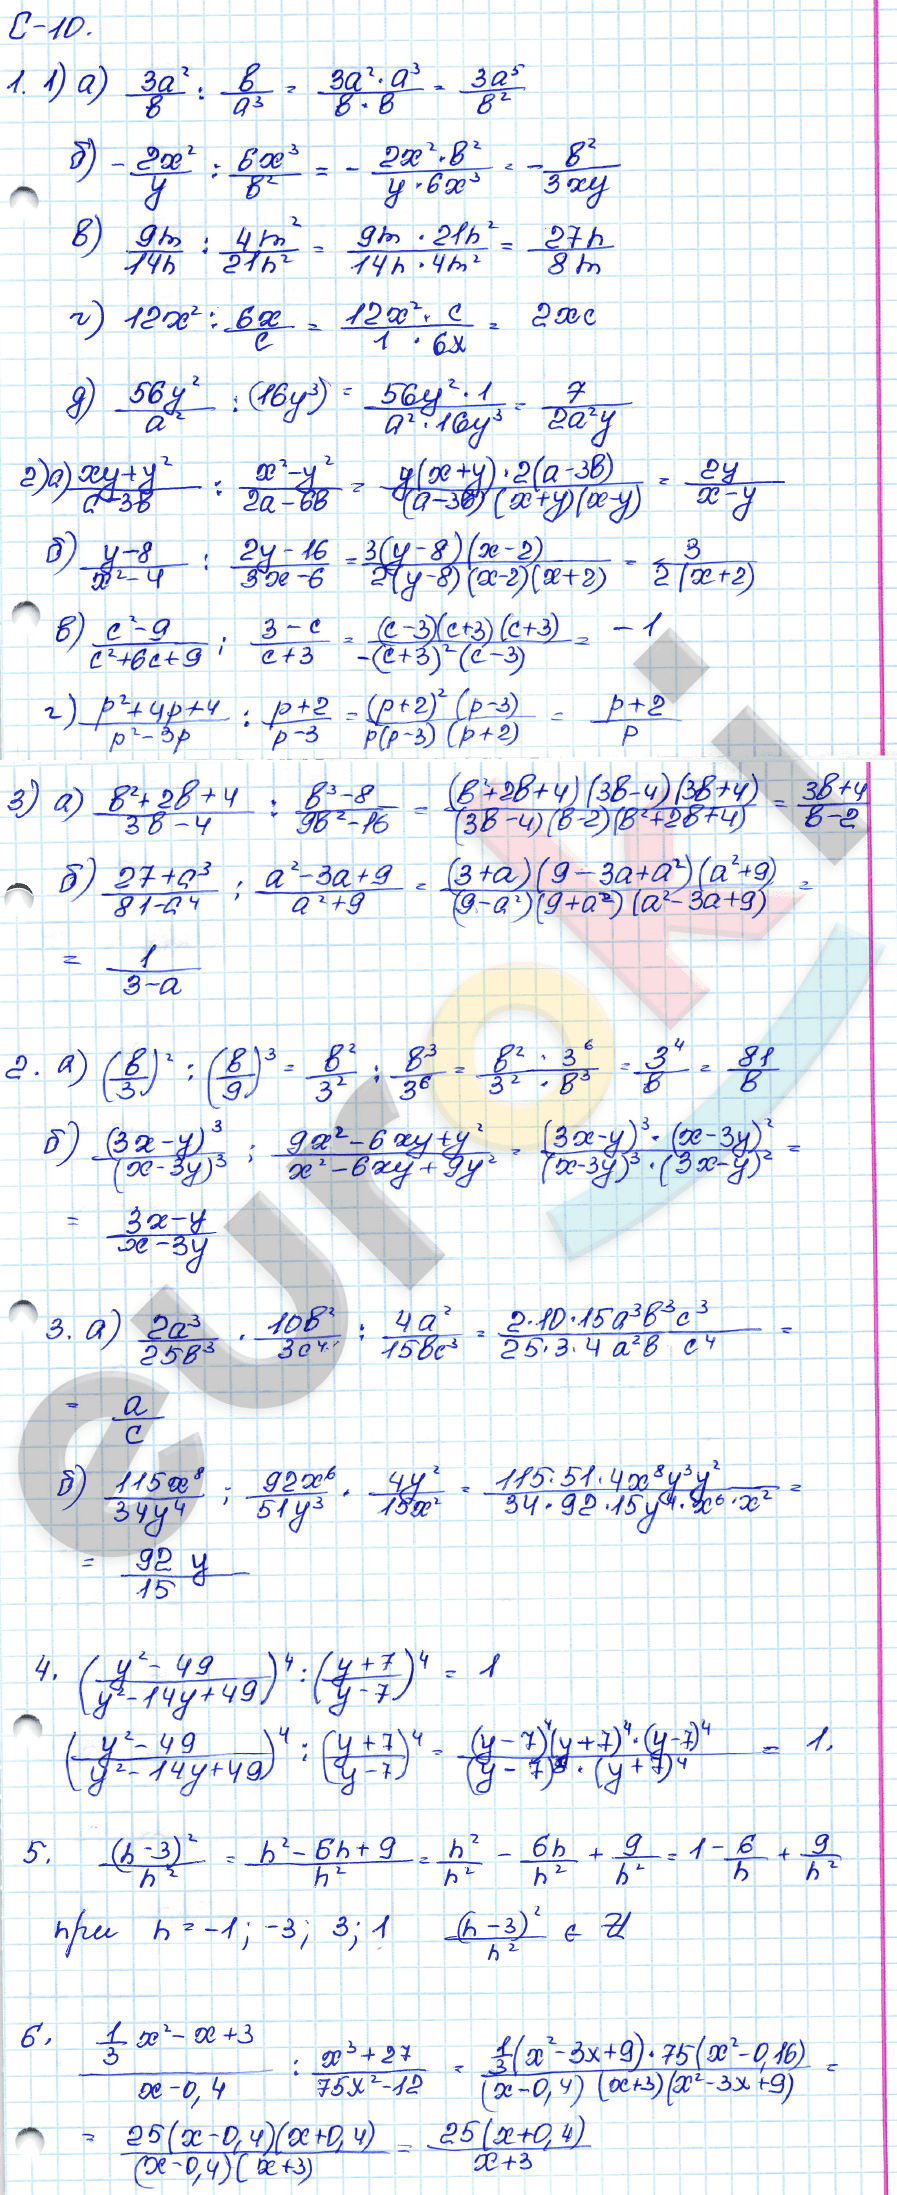 С-10.
1. 1) а) 3a²/b : b/a³ = 3a²·a³/b·b = 3a⁵/b²
б) -2x²/y : 6x³/b² = -2x²·b²/y·6x³ = -b²/3xy
в) 9m/14n : 4m²/21n² = 9m·21n²/14n·4m² = 27n/8m
г) 12x² : 6x/c = 12x²·c/1·6x = 2xc
д) 56y²/a² : (16y³) = 56y²·1/a²·16y³ = 7/2a²y
2) а) xy+y²/a-3b : x²-y²/2a-6b = y(x+y)·2(a-3b)/(a-3b)(x+y)(x-y) = 2y/x-y
б) y-8/x²-4 : 2y-16/3x-6 = 3(y-8)(x-2)/2(y-8)(x-2)(x+2) = 3/2(x+2)
в) c²-9/c²+6c+9 : 3-c/c+3 = (c-3)(c+3)(c+3)/-(c+3)²(c-3) = -1
г) p²+4p+4/p²-3p : p+2/p-3 = (p+2)²(p-3)/p(p-3)(p+2) = p+2/p
3) а) b²+2b+4/3b-4 : b³-8/9b²-16 = (b²+2b+4)(3b-4)(3b+4)/(3b-4)(b-2)(b²+2b+4) = 3b+4/b-2
б) 27+a³/81-a⁴ : a²-3a+9/a²+9 = (3+a)(9-3a+a²)(a²+9)/(9-a²)(9+a²)(a²-3a+9) =
= 1/3-a
2. а) (b/3)² : (b/9)³ = b²/3² : b³/3⁶ = b²·3⁶/3²·b³ = 3⁴/b = 81/b
б) (3x-y)³/(x-3y)³ : 9x²-6xy+y²/x²-6xy+9y² = (3x-y)³·(x-3y)²/(x-3y)³·(3x-y)² =
= 3x-y/x-3y
3. а) 2a³/25b³ · 10b²/3c⁴ : 4a²/15bc³ = 2·10·15a³b³c³/25·3·4a²b c⁴ =
= a/c
б) 115x⁸/34y⁴ : 92x⁶/51y³ · 4y²/15x² = 115·51·4x⁸y³y²/34·92·15y⁴·x⁶·x² =
= 92 y/15
4. (y²-49/y²-14y+49)⁴ : (y+7/y-7)⁴ = 1
(y²-49/y²-14y+49)⁴ : (y+7/y-7)⁴ = (y-7)⁴(y+7)⁴·(y-7)⁴/(y-7)⁸·(y+7)⁴ = 1.
5. (n-3)²/n² = n²-6n+9/n² = n²/n² - 6n/n² + 9/n² = 1 - 6/n + 9/n²
при n = -1; -3; 3; 1 (n-3)²/n² ∈ Z
6. 1/3 x²-x+3/x-0,4 : x³+27/75x²-12 = 1/3(x²-3x+9)·75(x²-0,16)/(x-0,4)(x+3)(x²-3x+9) =
= 25(x-0,4)(x+0,4)/(x-0,4)(x+3) = 25(x+0,4)/x+3
euroki